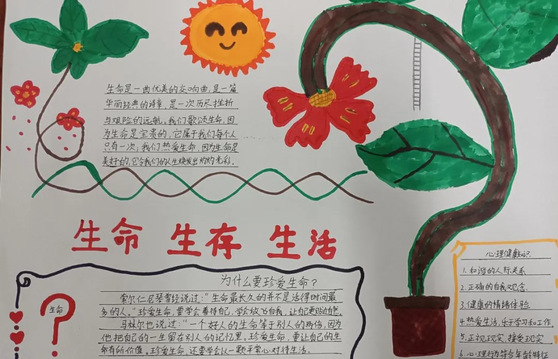 生命是一曲优美的交响曲,是一篇
华丽经典的诗章,是一次历尽挫折
与艰险的远航,我们歌颂生命,因
为生命是宝贵的,它属于我们每个人
只有一次,我们热爱生命,因为生命是
美好的,它令我们的人生焕发出灼灼光彩。
生命 生存 生活
为什么要珍爱生命?
生命
生命最长久的人并不是活得时间最
多的人,"珍爱生命,要学会善待自己,
说过:"一个好人的生命等别人的
他把自己的一生留在别人的记忆里,珍爱生命,要让自己的生
命有价值,珍爱生命,还要学会以一颗平常心对待生活。
心理健康
1.和谐的人际关系
2.正确的自我观念
3.健康的情绪体验
4.热爱生活,乐于学习和工作
5.正视现实,接受现实
6.心理行为符合年龄特征